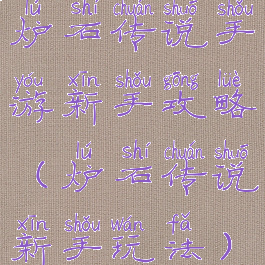 lú shí chuán shuō shǒu
炉石传说手
yóu xīn shǒu gōng lüè
游新手攻略
lú shí chuán shuō
（炉石传说
xīn shǒu wán fǎ
新手玩法）